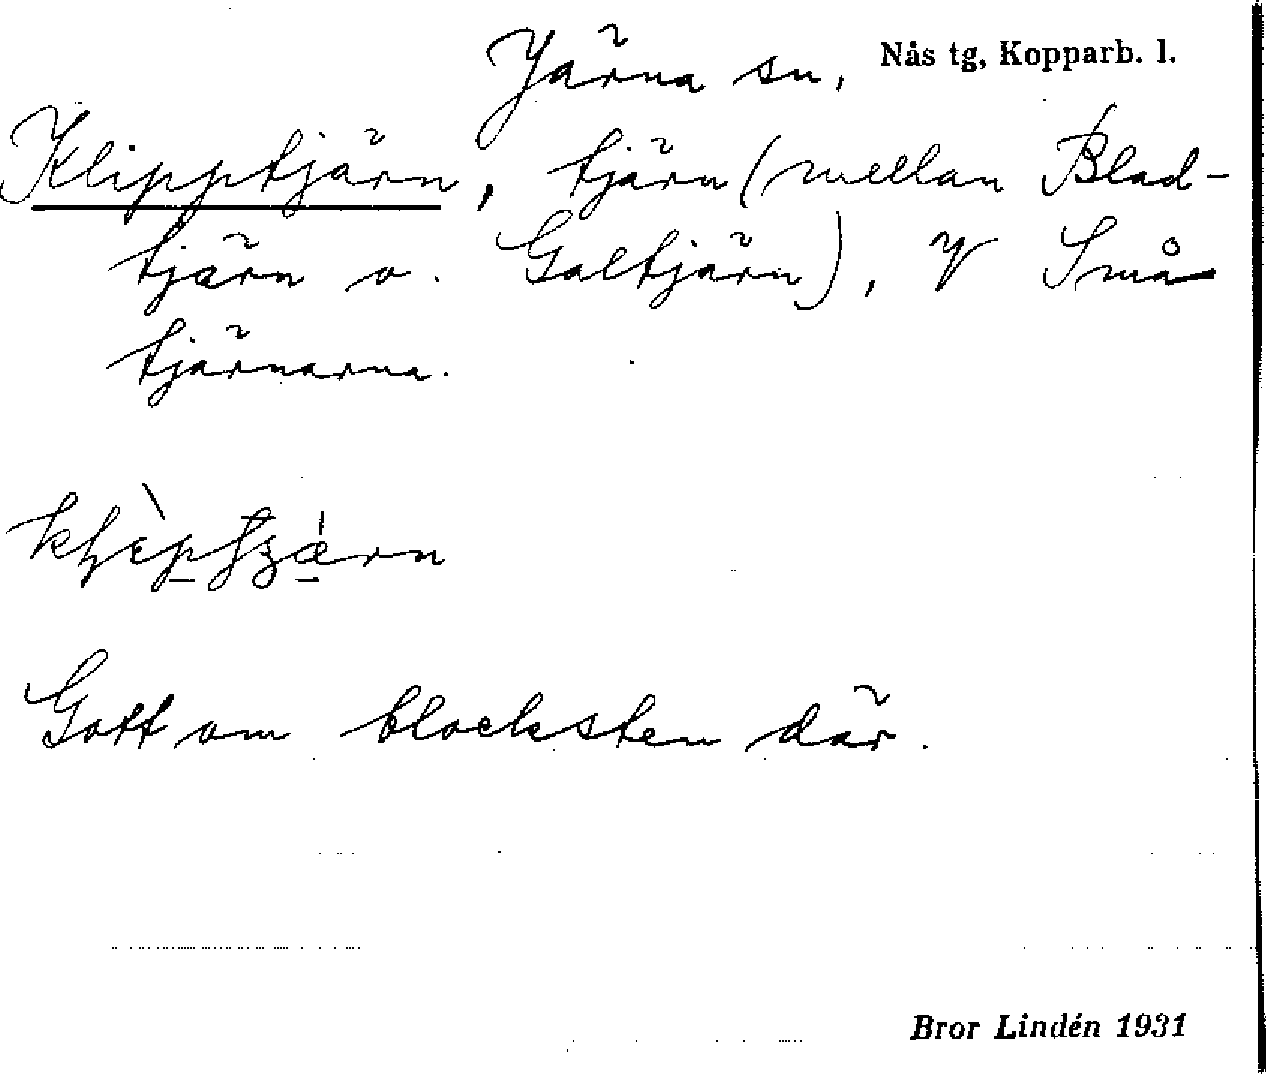 Järna sn, Nås tg, Kopparb. l.
Klipptjärn, tjärn (mellan Blad-
tjärn o. Galtjärn), V Små
tjärnarna.
Gott om blocksten där.
Bror Lindén 1931